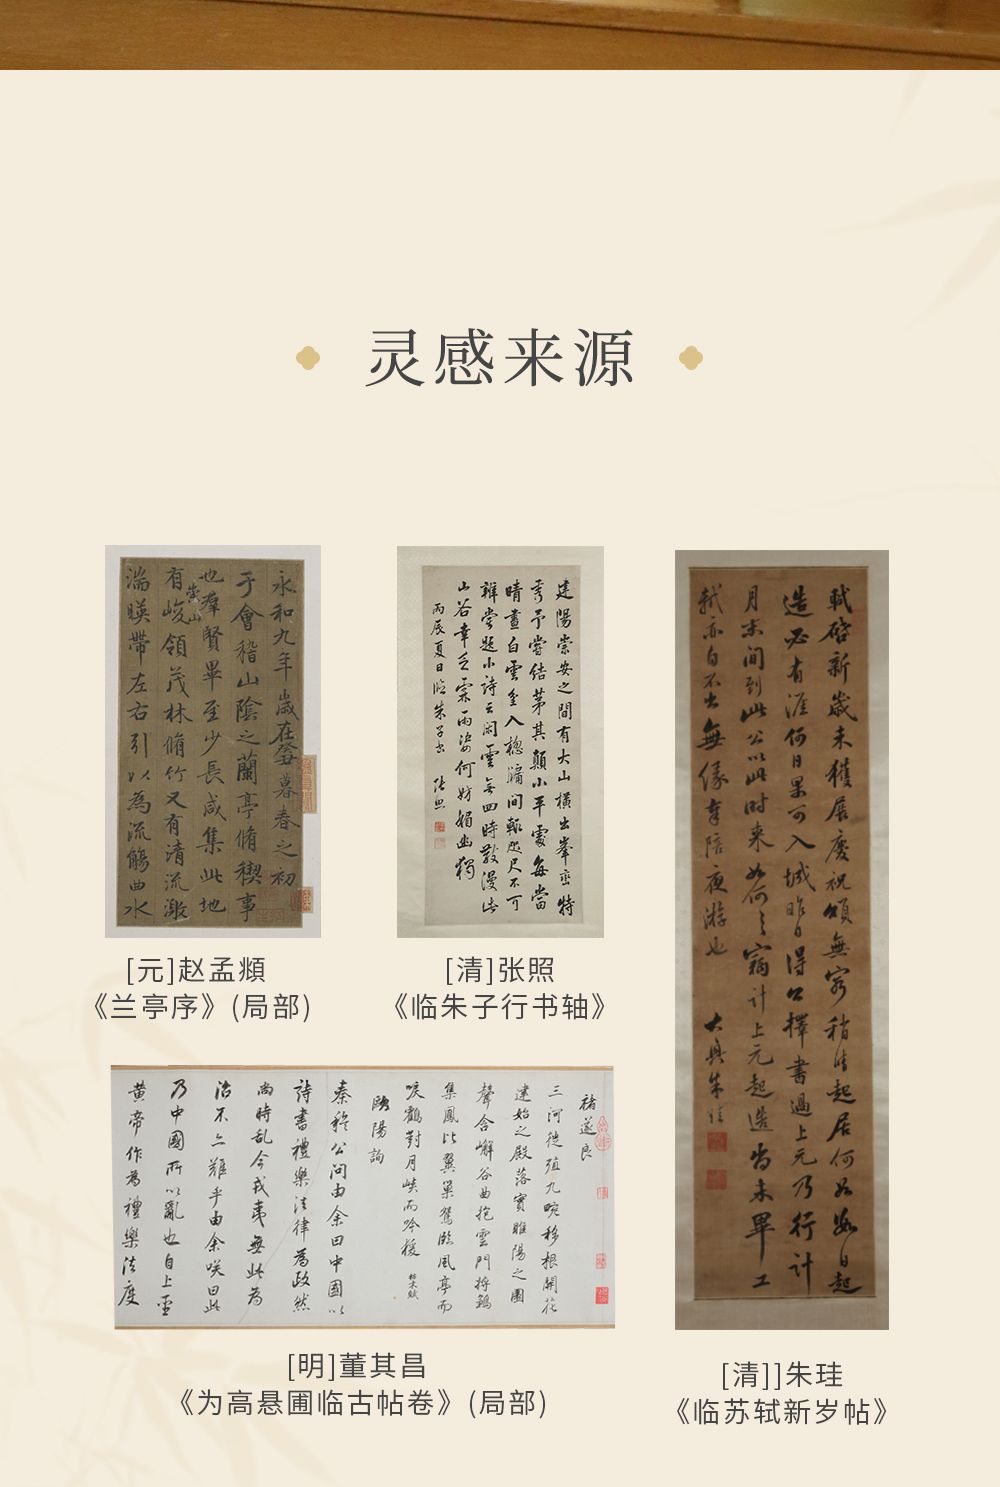 灵感来源
永和九年歲在癸丑暮春之初
于會稽山陰之蘭亭脩稧事
也羣賢畢至少長咸集此地
有崇山峻領茂林脩竹又有清流激
湍暎帶左右引以為流觴曲水
[元]赵孟頫
《兰亭序》(局部)
建陽崇安之間有大山橫出峯巒特
秀予嘗結茅其顛小平處每當
晴晝白雲坌入窓牖間輒咫尺不可
辨嘗題小詩云閒雲無四時散漫此
山谷幸乏霖雨姿何妨媚幽獨
丙辰夏日臨朱子書 張照
[清]张照
《临朱子行书轴》
軾啓新歲未獲展慶祝頌無窮稍晴起居何如數日起
造必有涯何日果可入城昨日得公擇書過上元乃行計
月末間到此公以此時来如何〻竊計上元起造尚未畢工
軾亦自不出無緣奉陪夜游也
大興朱珪
[清]]朱珪
《临苏轼新岁帖》
褚遂良
三河徙殖九畹移根開花
建始之殿落實睢陽之園
聲含嶰谷曲抱雲門將鶵
集鳳比翼巢鴛臨風亭而
唳鶴對月峽而吟猨 枯木賦
歐陽詢
秦穆公問由余曰中國以
詩書禮樂法律為政然
尚時乱今戎夷無此何以為
治不亦難乎由余咲曰此
乃中國所以亂也自上聖
黄帝作為禮樂法度
[明]董其昌
《为高悬圃临古帖卷》(局部)